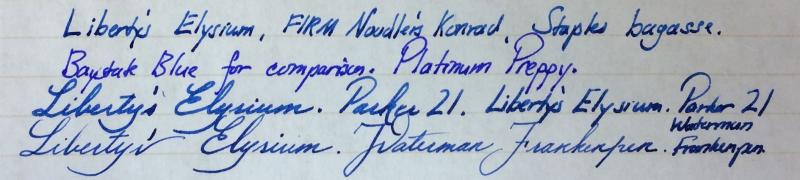 Liberty's Elysium, FIRM Noodler's Konrad, Staples bagasse.
Baystate Blue for comparison. Platinum Preppy.
Liberty's Elysium. Parker 21. Liberty's Elysium. Parker 21
Liberty's Elysium. Waterman Frankenpen. Waterman Frankenpen